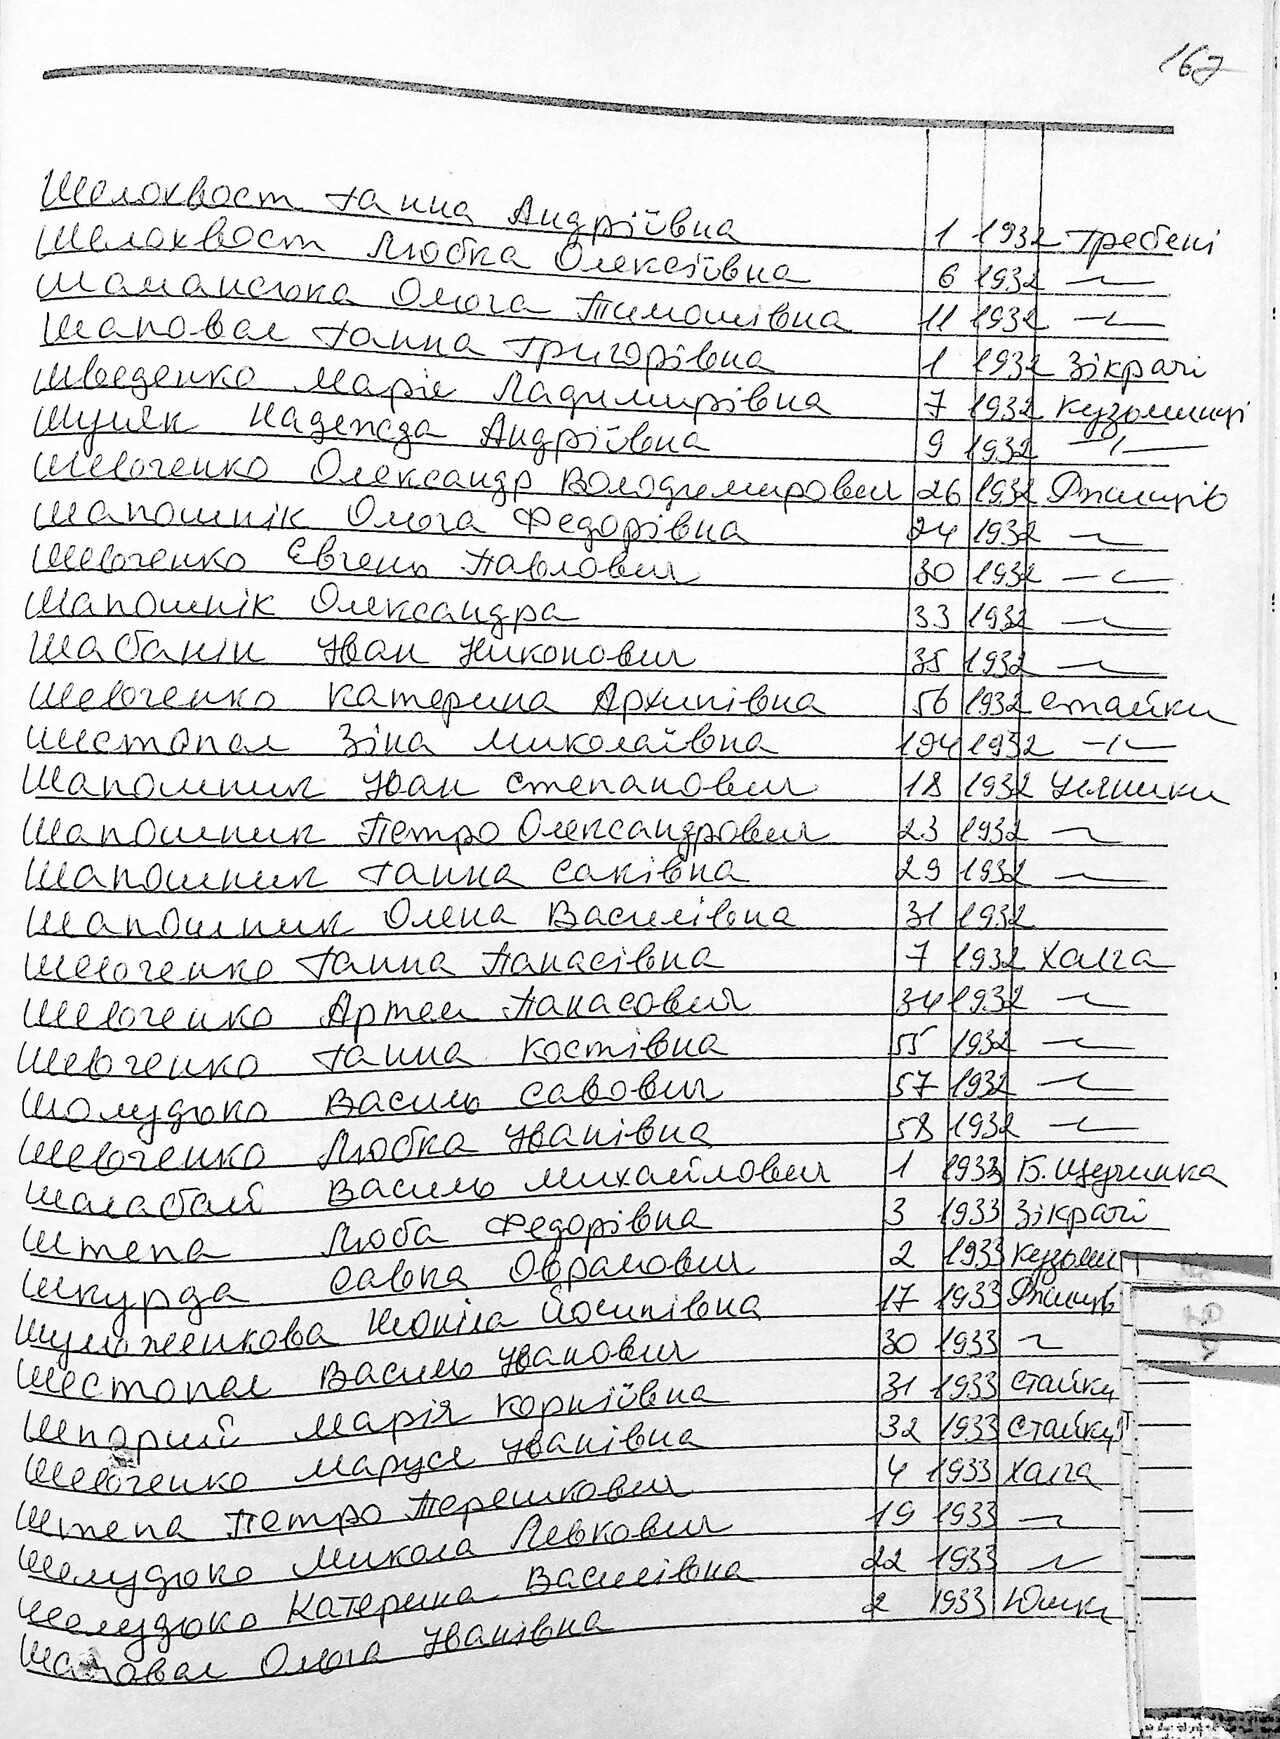 167
Шелохвост Ганна Андріївна 1 1932 Гребені
Шелохвост Любка Олексіївна 6 1932 —"—
Шаманська Ольга Тимошівна 11 1932 —"—
Шаповал Ганна Григорівна 1 1932 Зікрачі
Шведенко Марія Ладимирівна 7 1932 Кузьминці
Шуляк Надежда Андріївна 9 1932 —"—
Шевченко Олександр Володимирович 26 1932 Ржищів
Шапошнік Ольга Федорівна 24 1932 —"—
Шевченко Євгень Павлович 30 1932 —"—
Шапошнік Олександра 33 1932 —"—
Шабанін Іван Никонович 35 1932 —"—
Шевченко Катерина Архипівна 56 1932 Стайки
Шестопал Зіна Миколаївна 104 1932 —"—
Шапошник Іван Степанович 18 1932 Уляники
Шапошник Петро Олександрович 23 1932 —"—
Шапошник Ганна Саківна 29 1932 —"—
Шапошник Олена Василівна 31 1932
Шевченко Ганна Панасівна 7 1932 Халча
Шевченко Артем Панасович 34 1932 —"—
Шевченко Ганна Костівна 55 1932 —"—
Шолудько Василь Савович 57 1932 —"—
Шевченко Любка Іванівна 58 1932 —"—
Шалабай Василь Михайлович 1 1933 Б. Щучинка
Штепа Люба Федорівна 3 1933 Зікрачі
Шкурда Савка Оврамович 2 1933 Кузьми
Йосипівна 17 1933 Ржищів
Шестопал Василь Іванович 30 1933 —"—
Шпорий Марія Корніївна 31 1933 Стайки
Шевченко Маруся Іванівна 32 1933 Стайки
Штепа Петро Терешкович 4 1933 Халча
Шелудько Микола Левкович 19 1933 —"—
Шолудько Катерина Василівна 22 1933 —"—
Шаповал Ольга Іванівна 2 1933 Юшки